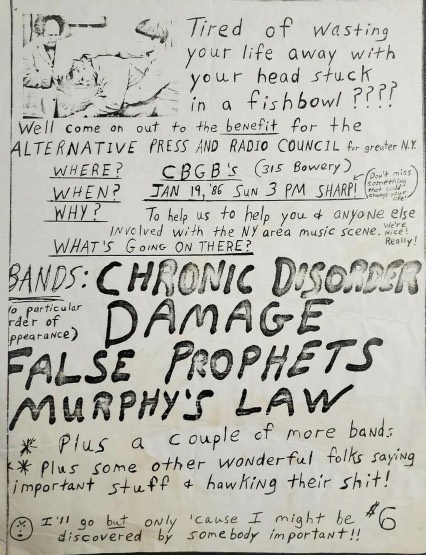 Tired of wasting
your life away with
your head stuck
in a fishbowl ????
Well come on out to the benefit for the
ALTERNATIVE PRESS AND RADIO COUNCIL for greater N.Y.
WHERE? CBGB's (315 Bowery)
WHEN? JAN 19, '86 SUN 3 PM SHARP!
(Don't miss
something
that could
change your
life!)
WHY? To help us to help you & anyone else
involved with the NY area music scene.
We're
Nice!
Really!
WHAT'S GOING ON THERE?
BANDS: CHRONIC DISORDER
o particular
rder of
ppearance)
DAMAGE
FALSE PROPHETS
MURPHY'S LAW
* Plus a couple of more bands
** Plus some other wonderful folks saying
important stuff & hawking their shit!
I'll go but only 'cause I might be
discovered by somebody important!!
$6